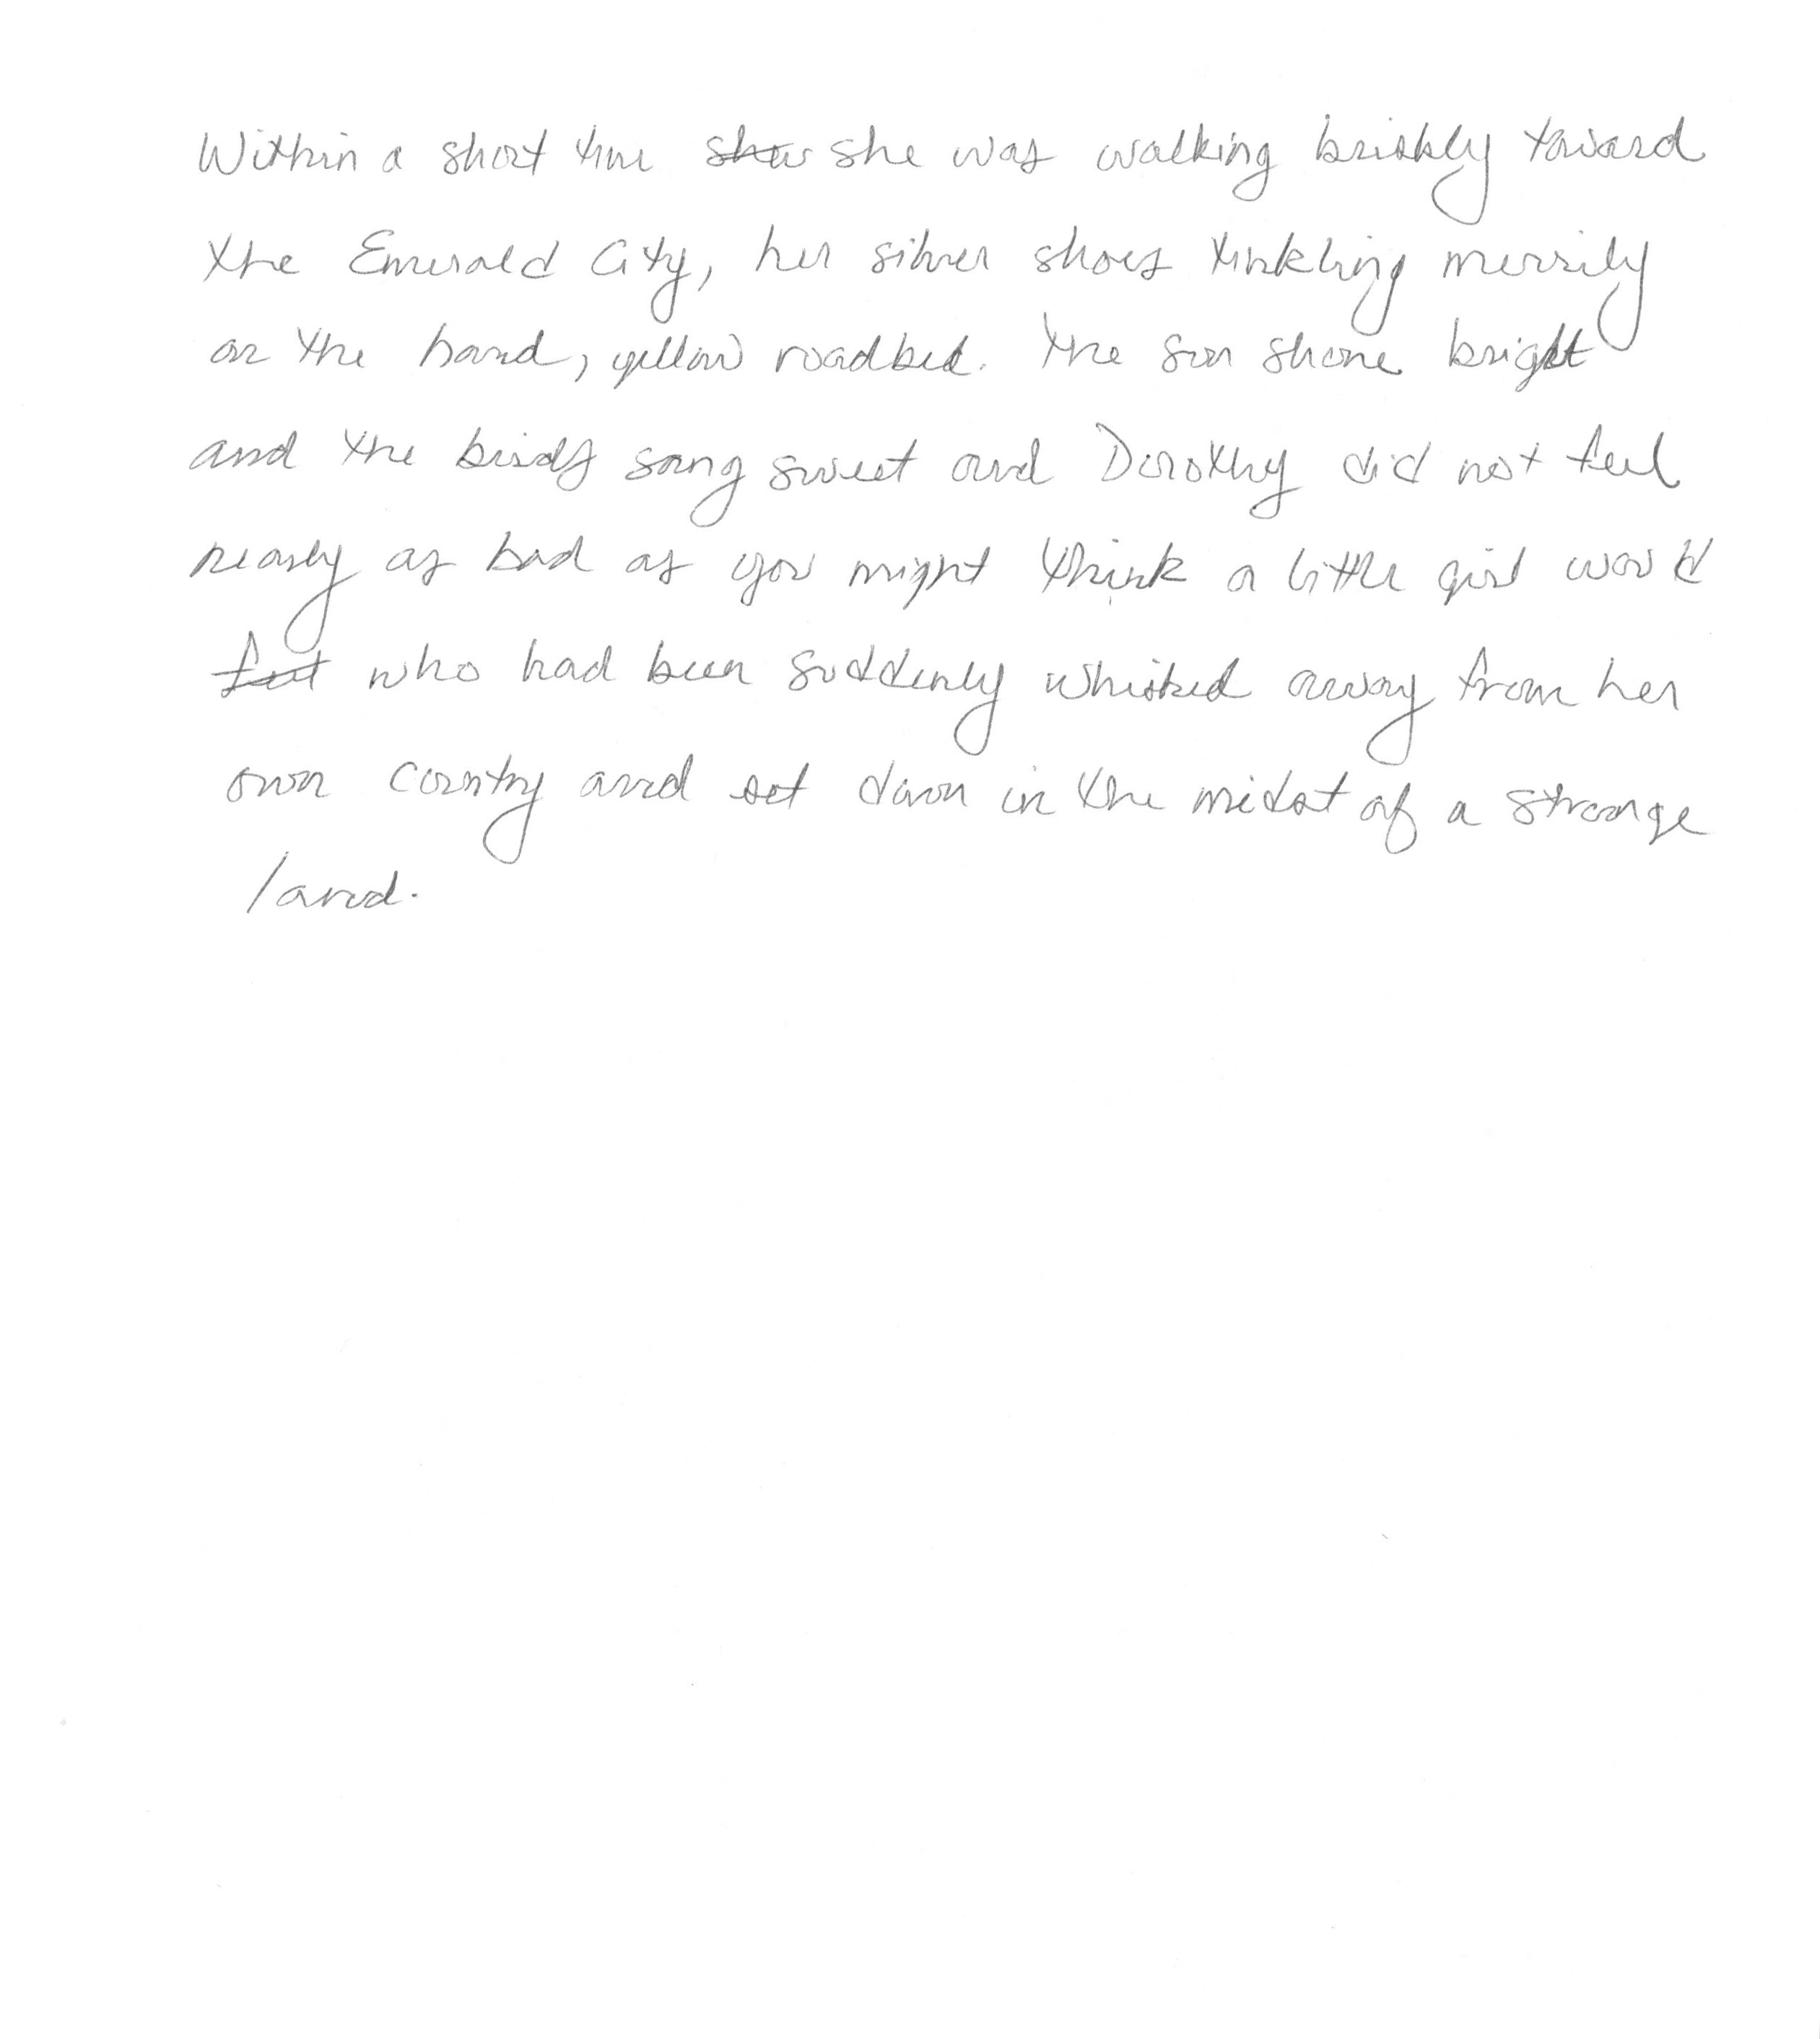 Within a short time shew she was walking briskly toward
the Emerald City, her silver shoes tinkling merrily
on the hard, yellow roadbed. The sun shone bright
and the birds sang sweet and Dorothy did not feel
nearly as bad as you might think a little girl would
feel who had been suddenly whisked away from her
own country and set down in the midst of a strange
land.